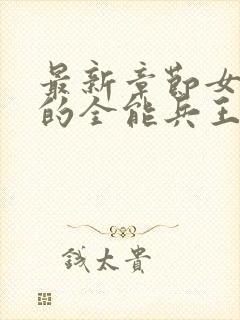 最新章节女
的全能兵王
钱太贵